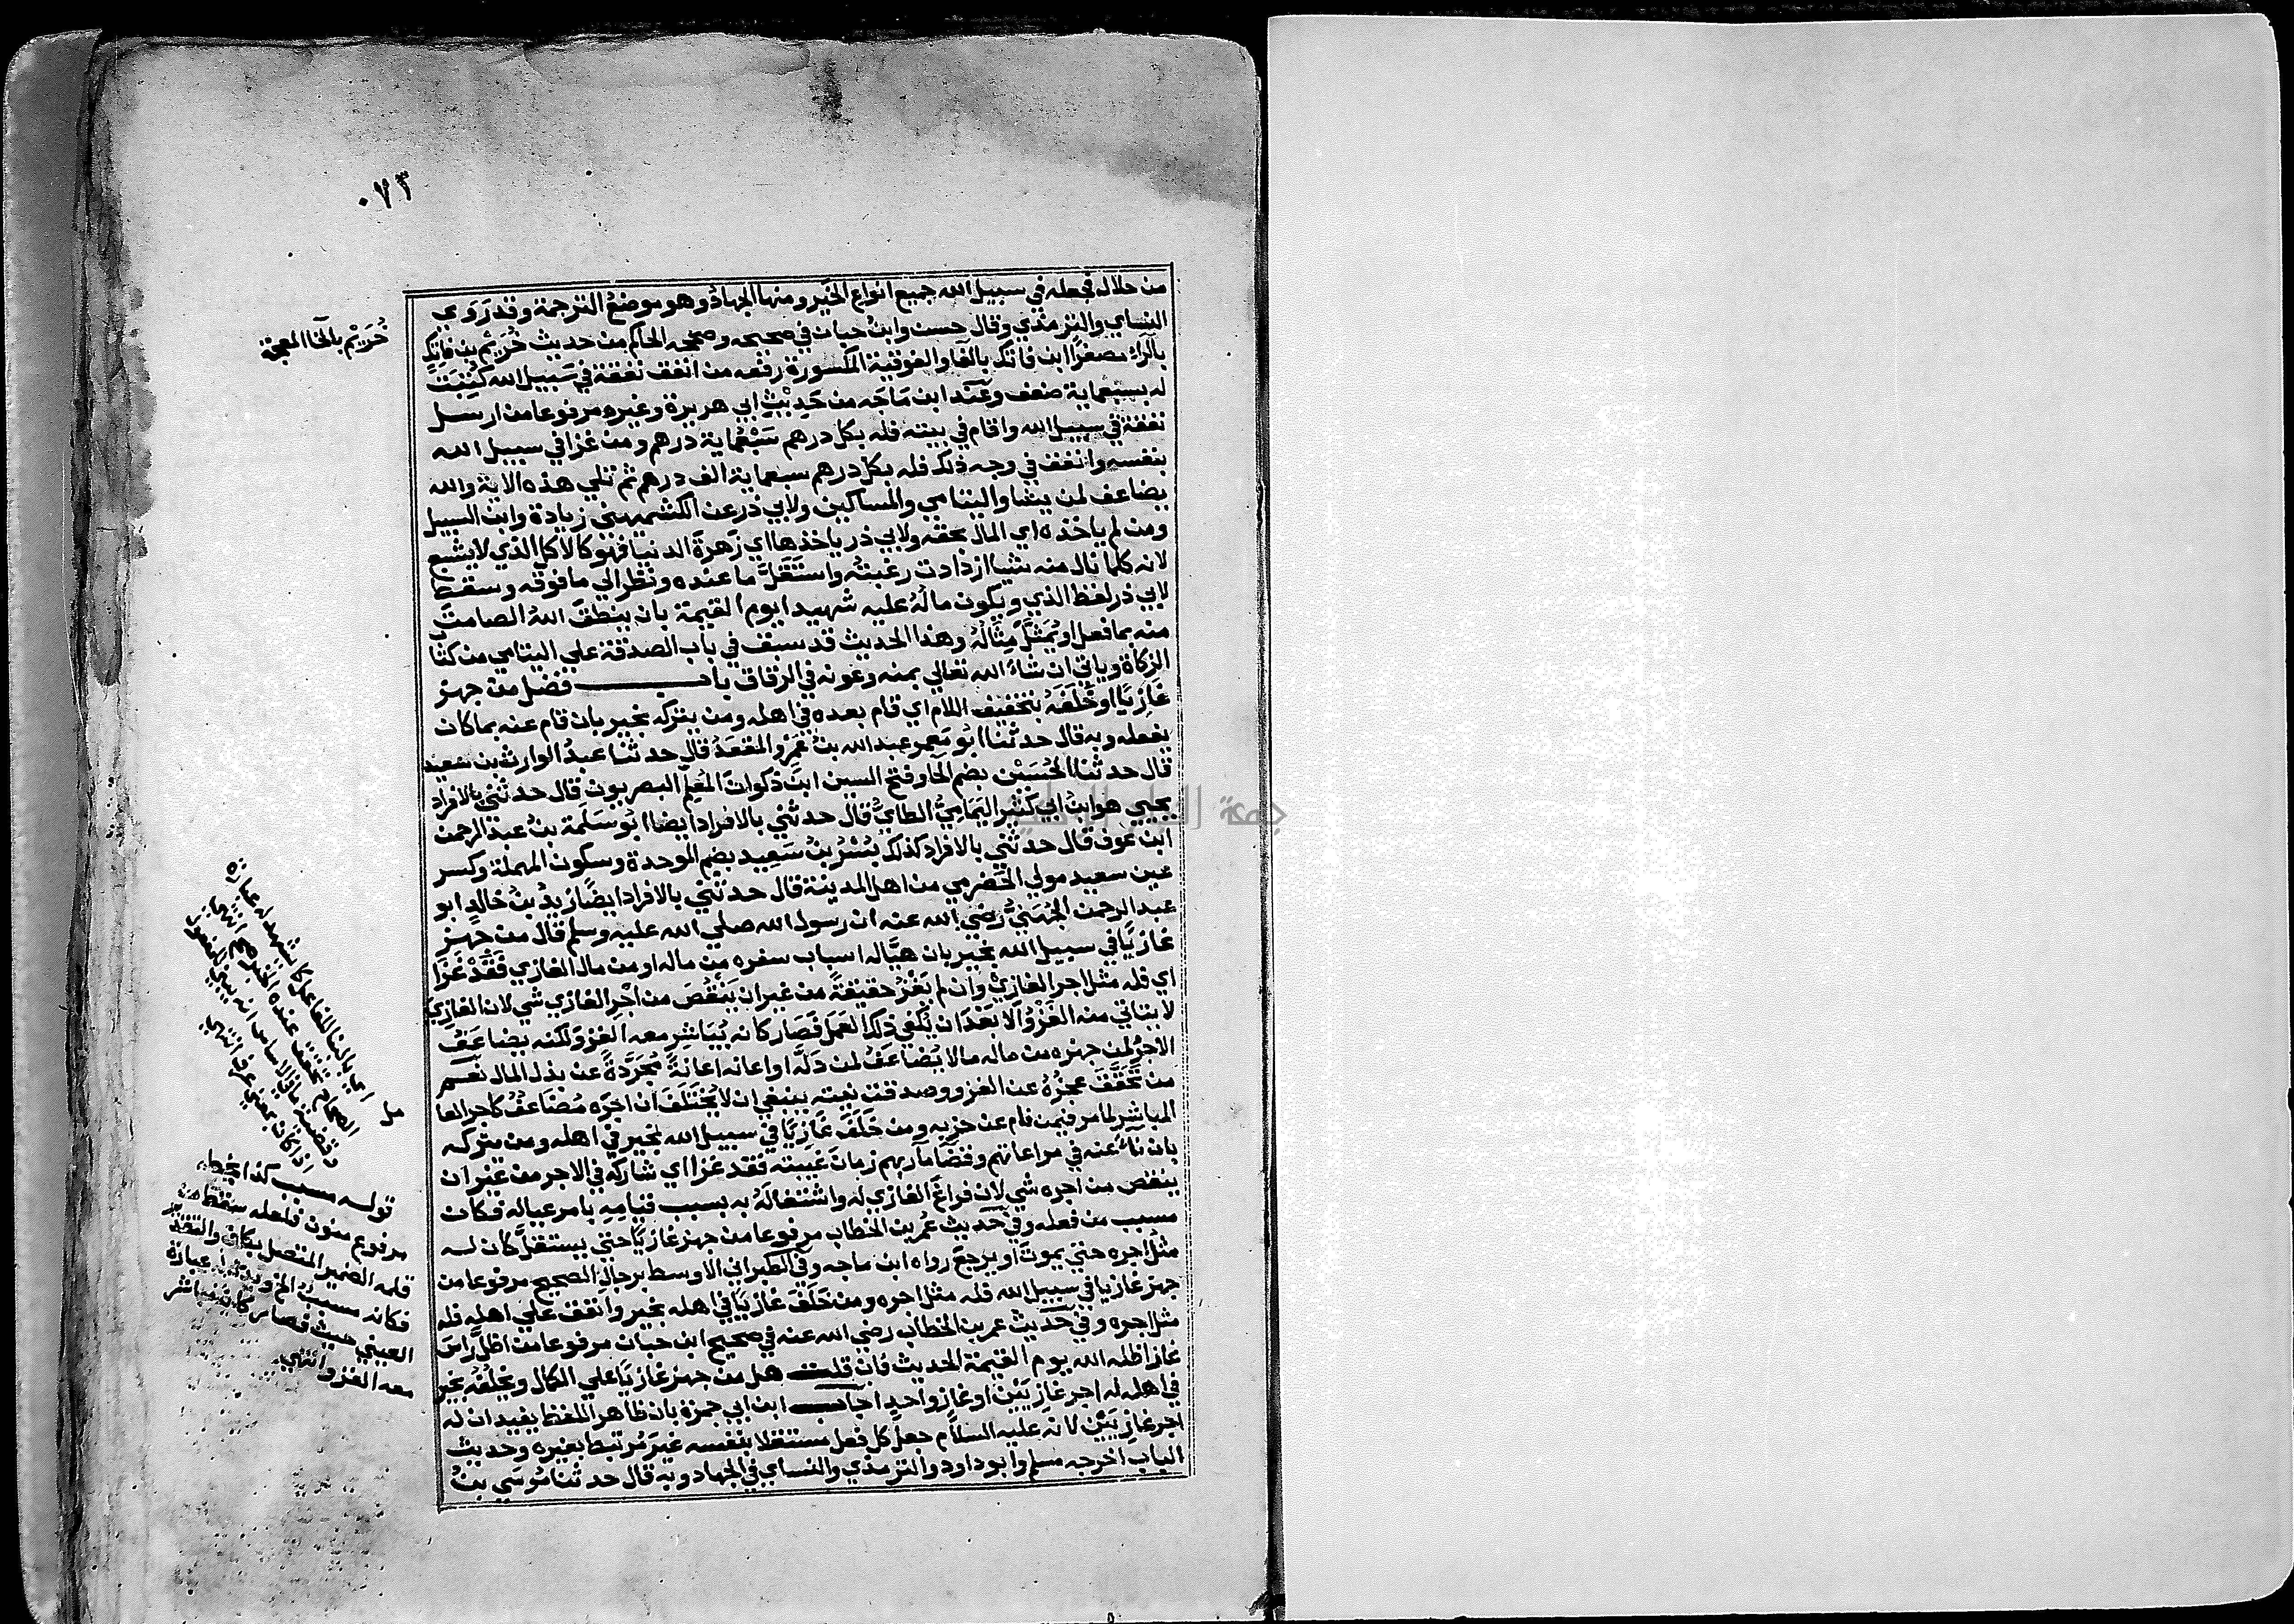 ٠٧٣
من حلال فجعله في سبيل الله جميع انواع الخير ومنها الجهاد وهو موضع الترجمة وقد روي
النساي والترمذي وقال حسن وابن حبان في صحيحه وصححه الحاكم من حديث خُرَيْم بن فاتك
بالراء مصغرا ابن فاتك بالفا والفوقية المكسورة رفعه من انفق نفقة في سَبيل الله كُتِبَت
له بسبعماية ضعف وعند ابن ماجه من حَدِيْثِ ابي هريرة وغيره مرفوعا من ارسل
نفقة في سبيل الله واقام في بيته فله بكل درهم سَبْعُماية درهم ومن غزا في سبيل الله
بنفسه وانفق في وجه ذلك فله بكل درهم سبعماية الف درهم ثم تلي هذه الاية والله
يضاعف لمن يشا واليتامي والمساكين ولابي ذر عن الكشميهني زيادة وابن السبيل
ومن لم ياخذه اي المال بحقه ولابي ذر ياخذها اي زَهرةَ الدنيا فهو كالاكل الذي لا يشبع
لانه كلما نال منه شيا ازدادت رغبته واستَقَلَّ ما عنده ونظر الي ما فوقه وسقط
لابي ذر لفظ الذي ويكون مالُهُ عليه شهيدا يوم القيمة بان ينطقَ اللهُ الصامتَ
منه بما فعل او يُمَثَّلَ مِثَالُهُ وهذا الحديث قد سبق في باب الصدقة علي اليتامي من كتا
الزكاة وياتي ان شاءَ الله تعالي بمنه وعونه في الرقاق باب فضل من جهز
غَازِيًا او خَلَفَهُ بتخفيف اللام اي قام بعده في اهله ومن يتركه بخير بان قام عنه بما كان
يفعله وبه قال حدثنا ابو مَعمر عبد الله بنُ عَمْرٍو المقعَدُ قال حدثنا عبدُ الوارث بن سَعيد
قال حدثنا الحُسَيْن بضم الحا وفتح السين ابنَ ذكوانَ المُعَلِّمُ البصريون قال حدثني بالافراد
يحيي هو ابنُ ابي كثير اليَمَامِيُّ الطايُّ قال حدثني بالافراد ايضا ابو سَلَمة بنُ عبد الرحمن
ابن عوف قال حدثني بالافراد كذلك بُسْرُ بنُ سَعِيد بضم الموحدة وسكون المهملة وكسر
عين سعيد مولي الحَضرمي من اهل المدينة قال حدثني بالافراد ايضًا زيدُ بنُ خالدٍ ابو
عبد الرحمن الجُهَنِيُّ رضي الله عنه ان رسول الله صلي الله عليه وسلم قال من جَهَّز
غازيًا في سبيل الله بخير بان هَيَّا له اسباب سفره من ماله او من مال الغازي فَقَدْ غَزَا
اي فله مثل اجر الغازيْ وان لم يَغزُ حقيقةً من غير ان يَنْقُصَ من اَجْرِ الغازي شي لان الغازي
لا يتاتي منه الغَزْوُ الا بَعْدَ ان يُكْفي ذلك العَمَل فَصَار كانه يُبَاشِر معه الغزو لكنه يضاعَفُ
الاجرُ لمن جهزه من ماله مالا يُضَاعَفُ لمن دَلَّه او اعانه اعانةً مُجَرَّدةً عن بذل المال نعم
من تحَقَّقَ عجزُهُ عن الغزو وصدقت نيته ينبغي ان لا يُخْتَلَفَ ان اجره مُضَاعَفٌ كاجر العا
المباشر لما مر فيمن نام عن حزبه ومن خَلَفَ غَازِيًا في سبيل الله بخير في اهله ومن يتركه
بان نابَ عنه في مراعاتهم وقضَا مآربهم زمانَ غيبته فقد غزا اي شاركه في الاجر من غير ان
ينقُص من اجره شي لان فراغَ الغازي له واشتغالَهُ به بسبب قيامِهِ بامر عياله فكان
مسبب من فعله وفي حَديث عُمر بن الخطاب مرفوعا من جهز غازيًا حتي يستقلَّ كان له
مثلُ اجره حتي يموتَ او يرجعَ رواه ابن ماجه وفي الطبراني الاوسط برجال الصحيح مرفوعا من
جهز غازيا في سبيل الله فله مثل اجره ومن خَلَفَ غازيًا في اهله بخير وانفق علي اهله فله
مثل اجره وفي حَديث عمر بن الخطاب رضي الله عنه في صحيح ابن حبان مرفوعا من اظلَّ رَاسَ
غاز اظله الله يوم القيمة الحديث فان قلت هل من جهز غازيًا علي الكمال ويخلُفُه بخير
في اهله له اجر غازِيَيْن او غازٍ واحدٍ اجابَ ابن ابي جمرة بان ظاهر اللفظ يفيد ان له
اجر غازِيَيْن لانه عليه السلام جعل كل فعل مستقلا بنفسه غيرَ مُرتبط بغيره وحديث
الباب اخرجه مسلم وابو داود والترمذي والنساي في الجهاد وبه قال حدثنا مُوسَي بنُ
خُرَيْم بالخا المعجمة
اي بالبنا للفاعل كما تشهد له عبارة
الصحاح
قوله مسبب كذا بخطه
مرفوع منون فلعله سقط من
قلمه الضمير المتصل بكان والتقدير
فكانه مسببٌ الخ
العيني حيث فصار كانه مباشر
معه الغزو انتهي
جمعة